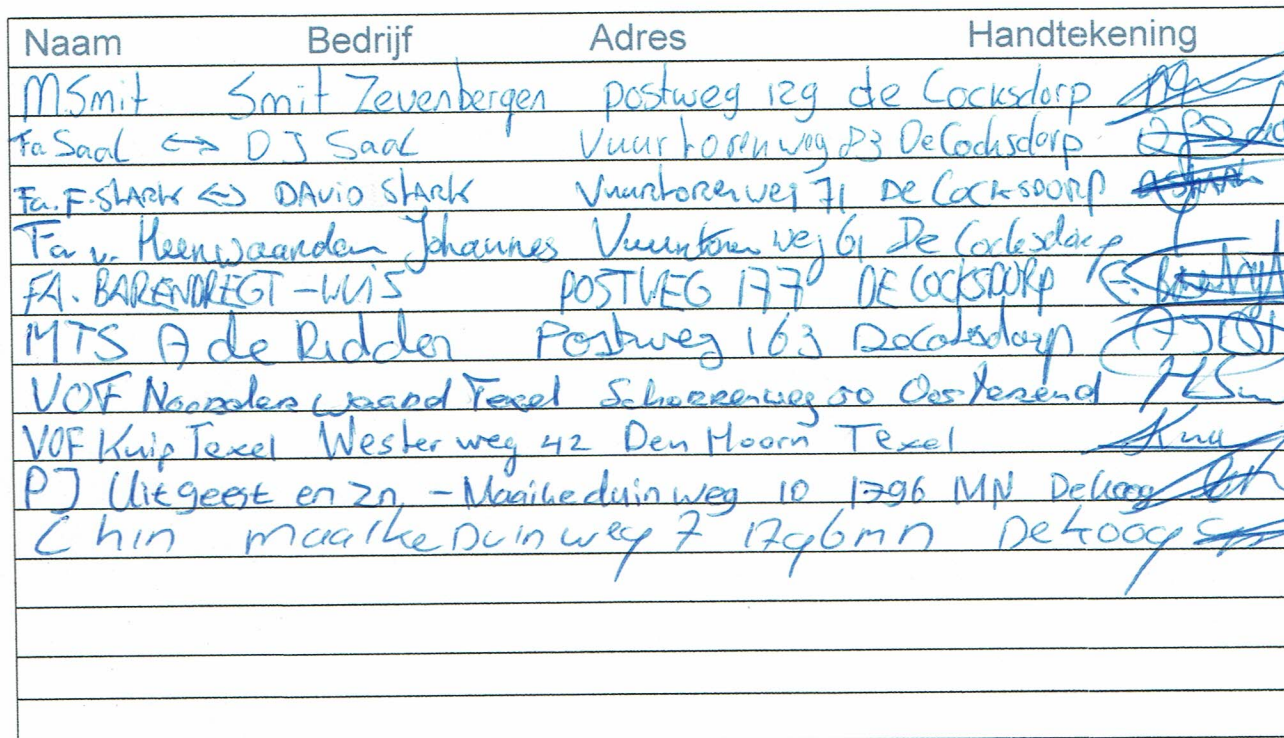 Naam Bedrijf Adres Handtekening
MSmit Smit Zevenbergen postweg 129 de Cocksdorp
Fa Saal <-> DJ Saal Vuurtorenweg 83 De Cocksdorp
Fa. F. Stark <-> DAVID Stark Vuurtorenweg 71 De Cocksdorp
Fa v. Heerwaarden Johannes Vuurtorenweg 61 De Cocksdorp
FA. BARENDREGT - LUIS POSTWEG 177 DE COCKSDORP
MTS A de Ridder Postweg 163 Decocksdorp
VOF Noorderwaard Texel Schorrenweg 50 Oosterend
VOF Kuip Texel Westerweg 42 Den Hoorn Texel
PJ Uitgeest en zn, - Maaikeduinweg 10 1796 MN De Koog
Chin maaikeDuinweg 7 1796mn De Koog